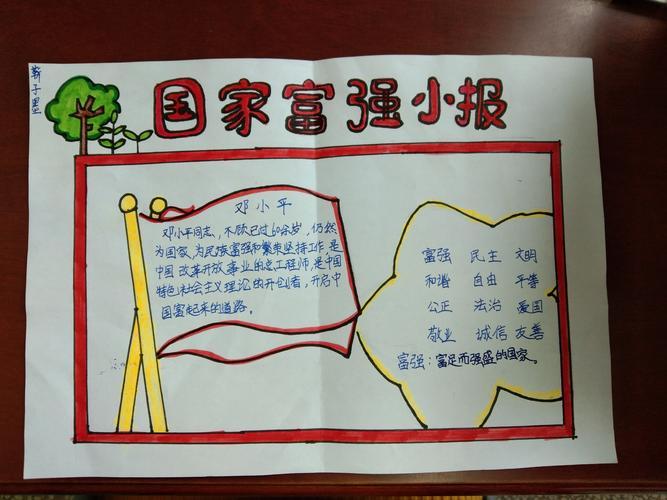 国家富强小报
靳子墨
邓小平
邓小平同志，不顾已过60余岁，仍然
为国家，为民族富强和繁荣坚持工作，是
中国改革开放事业的总工程师，是中国
特色社会主义理论的开创者，开启中
国富起来的道路。
富强 民主 文明
和谐 自由 平等
公正 法治 爱国
敬业 诚信 友善
富强：富足而强盛的国家。